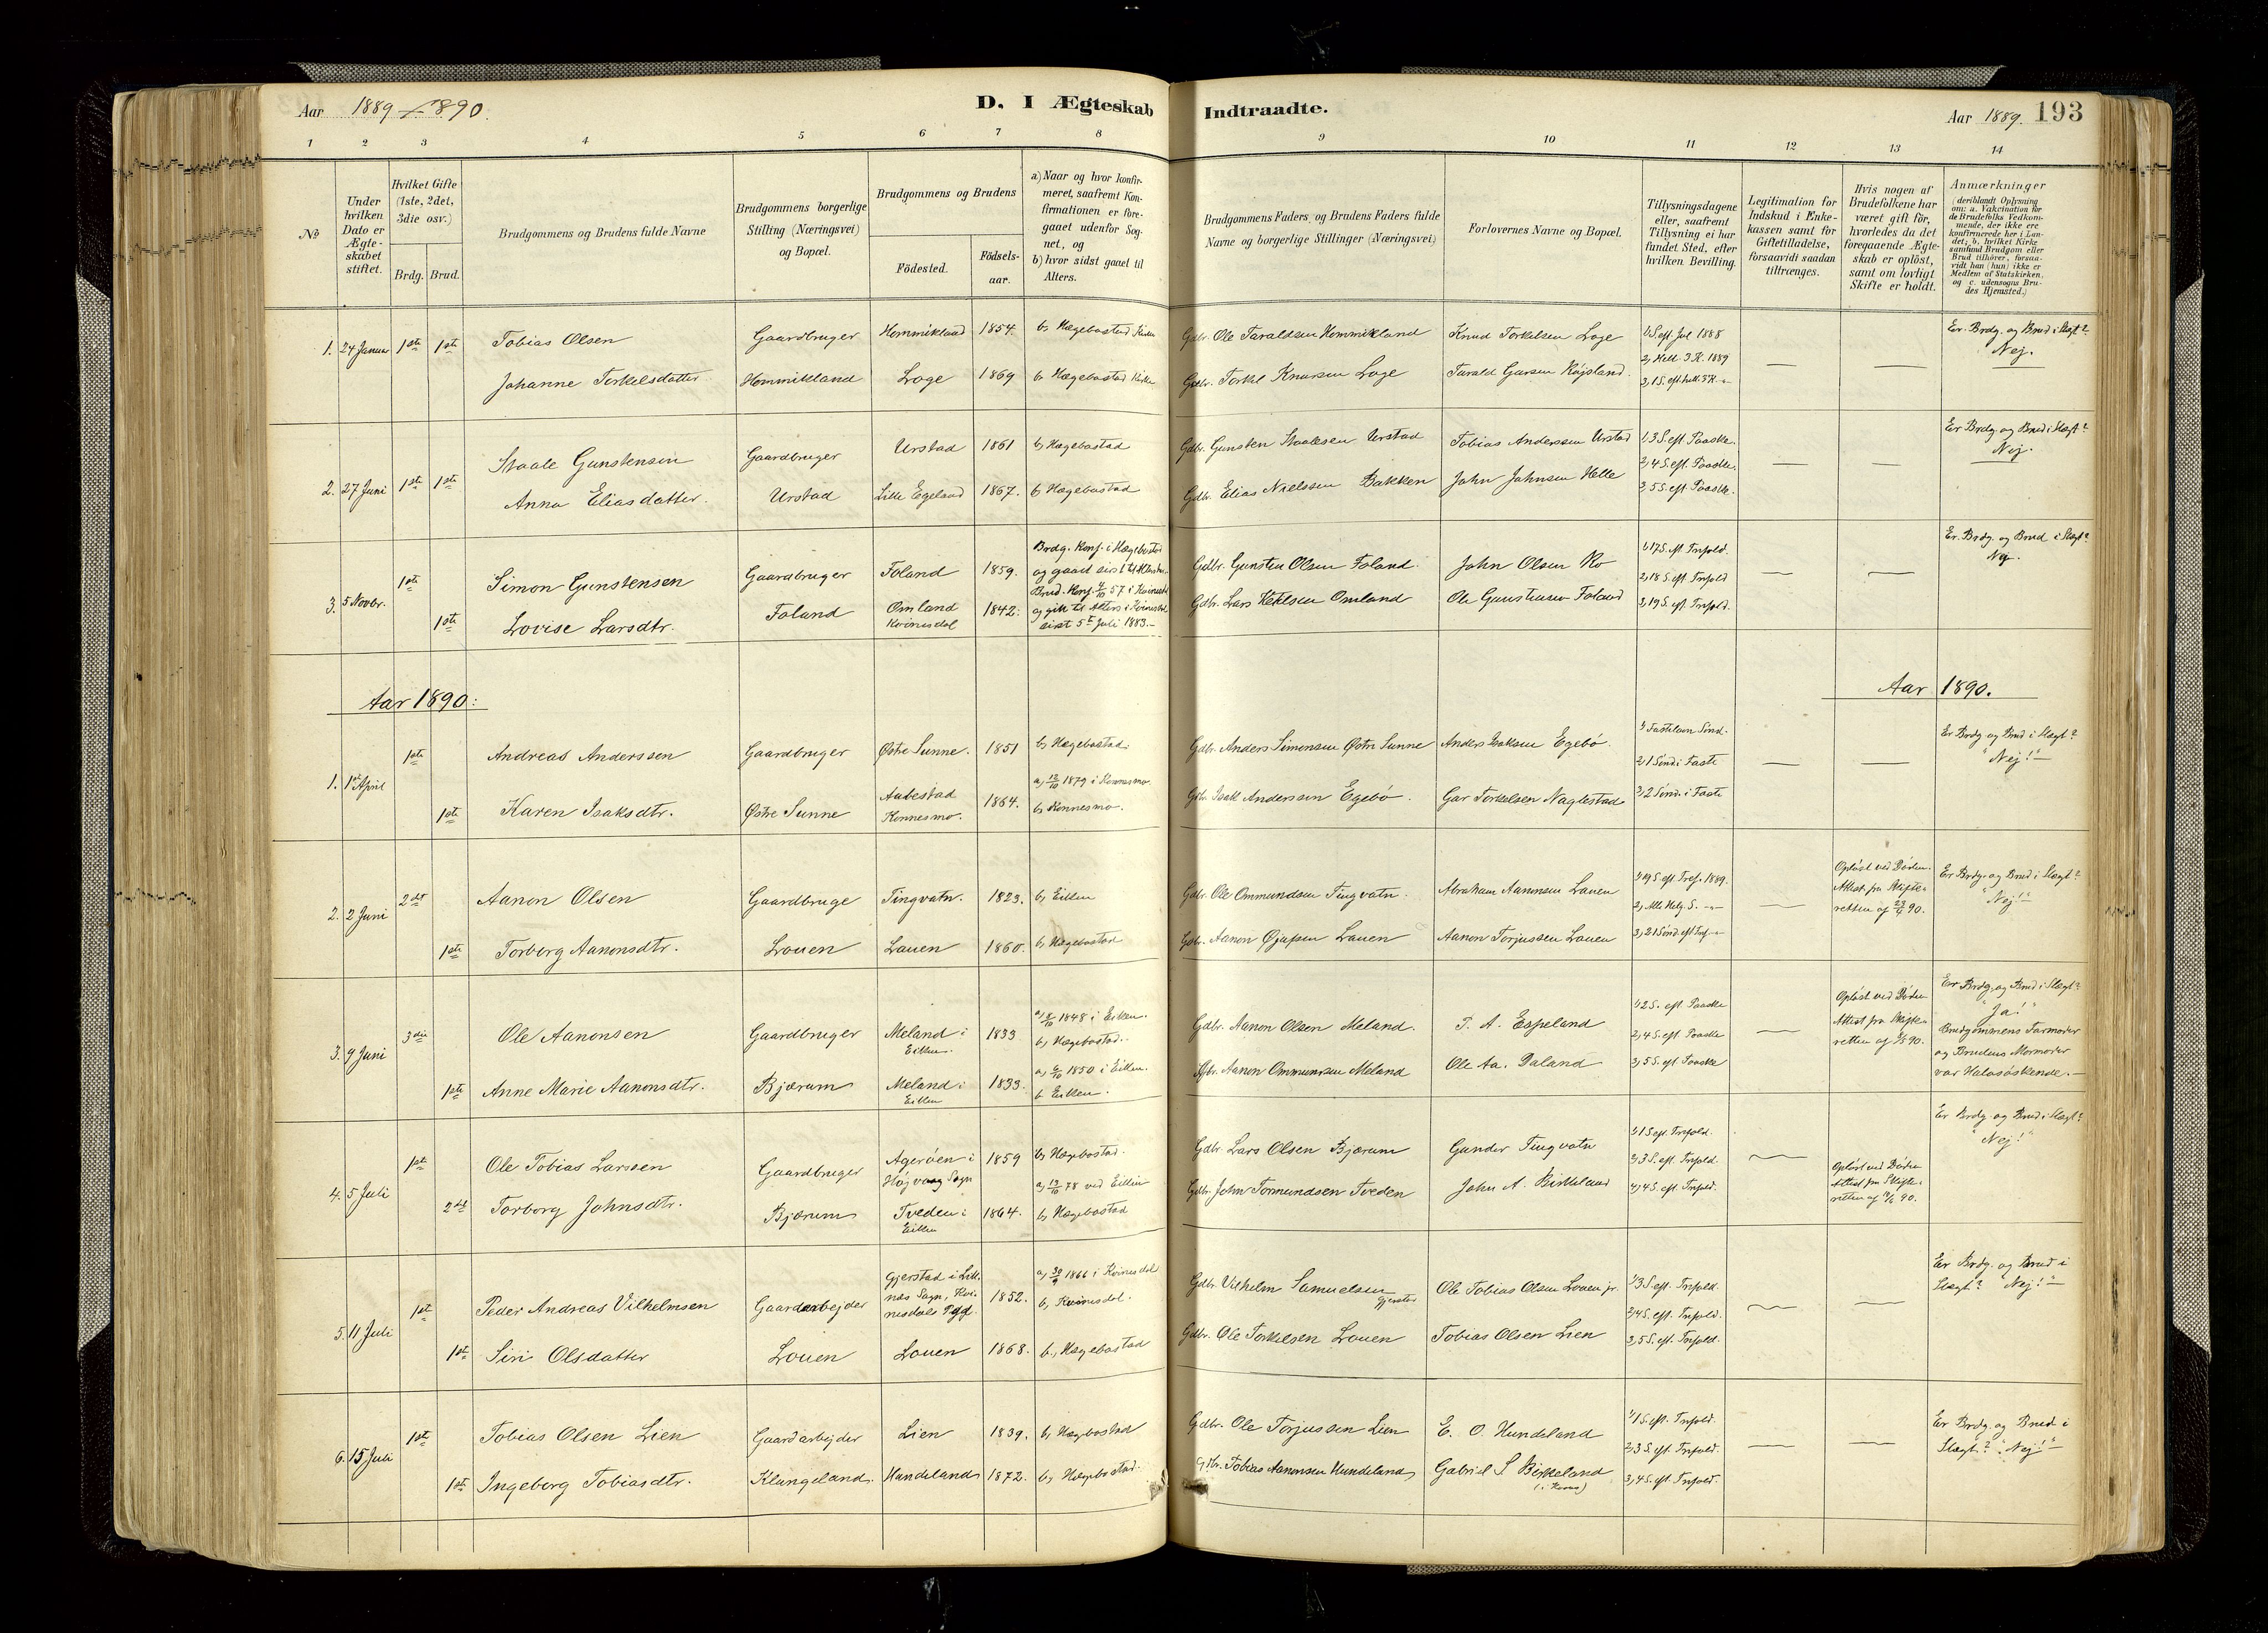 Aar 1889-1890.
D. I Ægteskab Indtraadte.
Aar 1889. 193
1 2 3 4 5 6 7 8 9 10 11 12 13 14
No
Under hvilken Dato er Ægteskabet stiftet.
Hvilket Gifte (1ste, 2det, 3die osv.)
Brdg. Brud.
Brudgommens og Brudens fulde Navne
Brudgommens borgerlige Stilling (Næringsvei) og Bopæl.
Brudgommens og Brudens
Födested. Födsels-aar.
a) Naar og hvor konfirmeret, saafremt Konfirmationen er foregaaet udenfor Sognet, og
b) hvor sidst gaaet til Alters.
Brudgommens Faders, og Brudens Faders fulde Navne og borgerlige Stillinger (Næringsvei)
Forlovernes Navne og Bopæl.
Tillysningsdagene eller, saafremt Tillysning ei har fundet Sted, efter hvilken Bevilling.
Legitimation for Indskud i Enkekassen samt for Giftetilladelse, forsaavidt saadan tiltrænges.
Hvis nogen af Brudefolkene har været gift för, hvorledes da det foregaaende Ægteskab er oplöst, samt om lovligt Skifte er holdt.
Anmærkninger (deriblandt Oplysning om: a. Vakcination for de Brudefolks Vedkommende, der ikke ere konfirmerede her i Landet; b. hvilket Kirkesamfund Brudgom eller Brud tilhörer, forsaavidt han (hun) ikke er Medlem af Statskirken, og c. udensogns Brudes Hjemsted.)
1. 24 Januar 1ste 1ste Tobias Olsen Gaardbruger Hommikland 1854. b, Hægebostad Kirke Gdbr. Ole Taraldsen Hommikland Knud Torkelsen Loge 1, S. eft Jul 1888 Er Brdg. og Brud i Slægt?
Johanne Torkelsdatter Hommikland Loge 1869 b, Hægebostad Kirke Gdbr. Torkel Knudsen Loge Tarald Garsen 2, Hell. 3 K. 1889 Nej.
3, 1 S. eft. hell. 3 K.
2. 27 Juni 1ste 1ste Staale Gunstensen Gaardbruger Urstad 1861 b, Hægebostad Gdbr. Gunsten Staalesen Urstad Tobias Anderssen Urstad 1, 3 S. eft. Paaske Er Brdg. og Brud i Slægt?
Anna Eliasdatter. Urstad Lille Egeland 1867. b, Hægebostad Gdbr. Elias Nielssen Bakken John Johnsen Helle 2, 4 S. eft. Paaske. Nej.
3, 5 S. eft. Paaske.
3. 5 Novbr. 1ste Simon Gunstensen Gaardbruger Foland 1859. Brdg. Konf. i Hægebostad og gaaet sist til Alters. Gdbr. Gunsten Olsen Foland. John Olsen Ro 1, 17 S. eft. Trefold. Er. Brdg. og Brud i Slægt?
1ste Lovise Larsdtr. Foland Omland Kvinesdal 1842. Brud. Konf. 4/10 57 i Kvinesd. og gik til Alters i Kvinesdal sist 5te Juli 1883.- Gdbr. Lars Ketelsen Omland Ole Gunstensen Foland 2, 18 S. eft. Trefold Nej.
3, 19 S. eft. Trefold.
Aar 1890: Aar 1890.
1. 1st April 1ste Andreas Anderssen Gaardbruger Østre Sunne. 1851 b, Hægebostad. Gdbr. Anders Simonsen Østre Sunne Anders Isaksen Egebö 1, Fastelavn Sönd. Er Brdg og Brud i Slægt?
1ste Karen Isaksdtr. Østre Sunne Aabestad Konnesmo. 1864. a, 12/10 1879 i Konnesmo. b, Konnesmo. Gdbr. Isak Anderssen Egebö. Gar Torkelsen Naglestad 2, 1 Sönd. i Faste "Nej!"
3, 2 Sönd. i Faste
2. 2 Juni 2det Aanon Olsen Gaardbruge Tingvatn. 1823. b, Eiken Gdbr. Ole Ommundsen Tingvatn. Abraham Aanensen Lauen 1, 19 S. eft Tref. 1889. Oplöst ved Döden. Attest fra Skifteretten af 23/4 90. Er Brdg. og Brud i Slægt?
1ste Torborg Aanonsdtr. Lauen Lauen 1860. b, Hægebostad Gdbr. Aanon Lauen Aanon Torjussen Lauen 2, Alle Helg. S. "Nej!"
3, 21 Sönd. eft Tref.
3. 9 Juni 3die Ole Aanonsen Gaardbruger Meland i Eiken. 1833 a, 8/10 1848 i Eiken. b, Hægebostad. Gdbr. Aanon Olsen Meland. T. A. Espeland 1, 2 S. eft. Paaske Oplöst ved Döden Attest fra Skifteretten af 90. Er Brdg. og Brud i Slægt?
1ste Anne Marie Aanonsdtr. Bjærum Meland i Eiken 1833. a, 6/10 1850 i Eiken. b Eiken. Gdbr. Aanon Ommundsen Meland Ole Aa. Daland 2, 4 S. eft Paaske "Ja!" Brudgommens Farmoder og Brudens Mormoder var Halvsöskende.-
3, 5 S. eft Paaske
4. 5 Juli 1ste Ole Tobias Larssen Gaardbruger Ageröen i Högvaag Sogn 1859 b, Hægebostad. Gdbr. Lars Olsen Bjærum Gunder Tingvatn 1, 1 S. eft. Trefold. Er Brdg. og Brud i Slægt?
2det Torborg Johnsdtr. Bjærum Tveden i Eiken 1864. a, 13/10 78 ved Eiken b, Hægebostad Gdbr. John Tormundsen Tveden John A. Birkeland 2, 3 S. eft. Trefold. Oplöst ved Döden Attest fra Skifteretten af 90. "Nej!"
3, 4 S. eft. Trefold.
5. 11 Juli 1st Peder Andreas Vilhelmsen Gaardarbejder Gjerstad i Liknes Sogn, Kvinesdals Pgd. 1852. a, 30/9 1866 i Kvinesdal b, Kvinesdal. Gdbr. Vilhelm Samuelsen Gjerstad Ole Tobias Olsen Lauen jr. 1, 3 S. eft. Trefold. Er Brdg. og Brud i
1st Siri Olsdatter Lauen Lauen 1868. b., Hægebostad Gdbr. Ole Torkelsen Lauen Tobias Olsen Lien 2, 4 S. eft. Trefold. Slægt? "Nej!"
3, 5 S. eft. Trefold.
6. 15 Juli 1st Tobias Olsen Lien Gaardarbejder Lien 1839. b, Hægebostad Gdbr. Ole Torjussen Lien E. O. Hundeland 1, 1 S. eft. Trefold. Er Brdg. og Brud i
1st Ingeborg Tobiasdtr. Klungeland. Hundeland 1872. b, Hægebostad. Gdbr. Tobias Aanonsen Hundeland Gabriel S Birkeland 2, 3 S. eft. Trefold. Slægt? "Nej!"
3, 4 S. eft. Trefold.